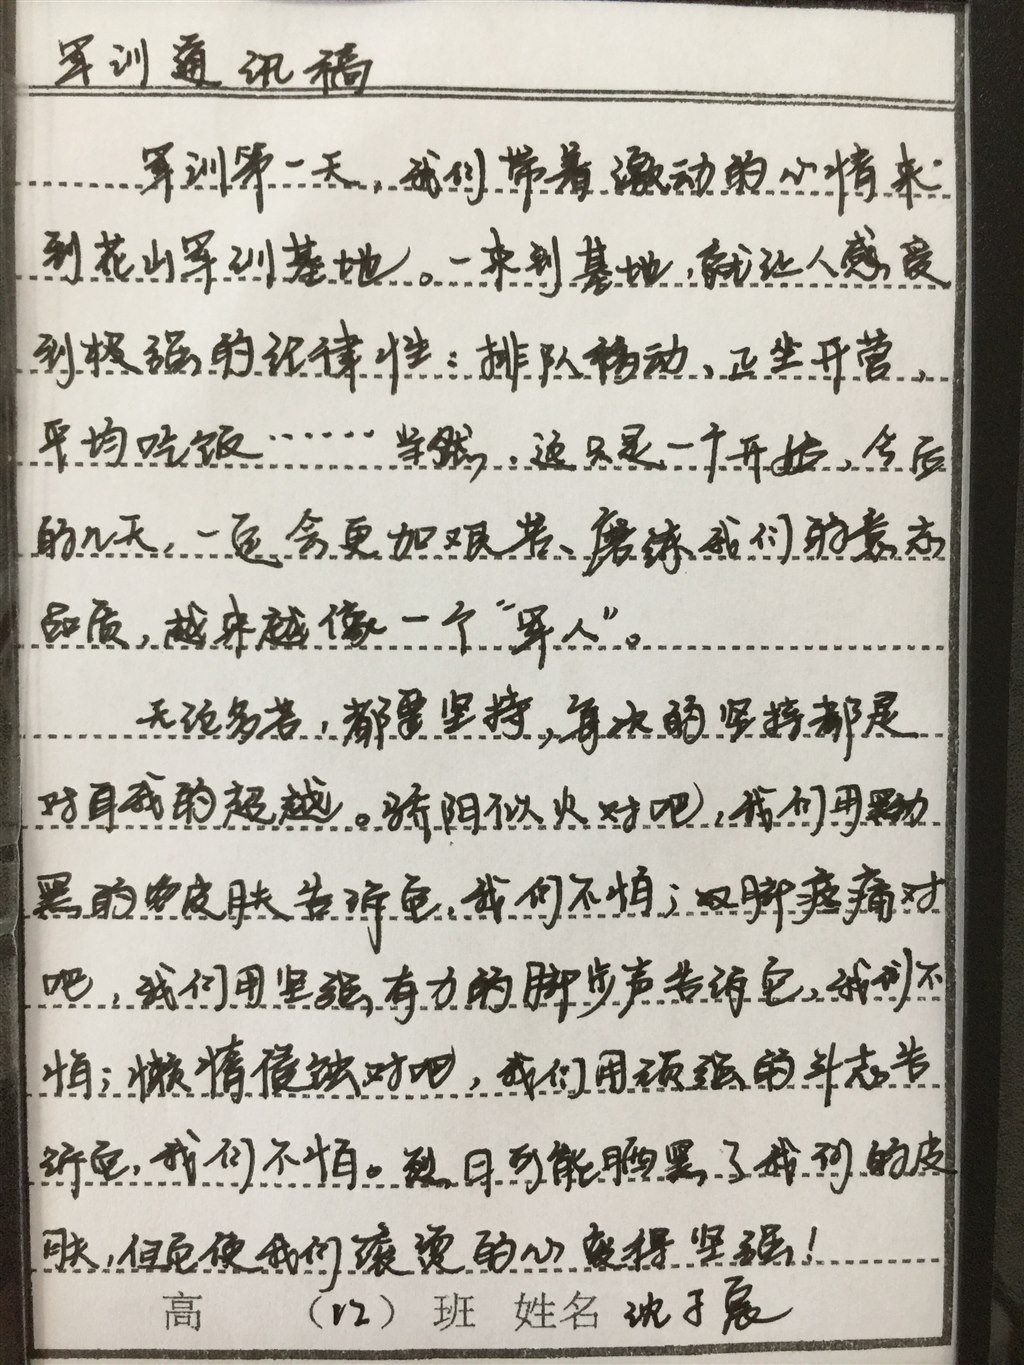 军训通讯稿
军训第一天，我们带着激动的心情来
到花山军训基地。一来到基地，就让人感受
到极强的纪律性：排队移动、正坐开营、
平均吃饭……当然，这只是一个开始，今后
的几天，一定会更加艰苦、磨练我们的意志
品质，越来越像一个“军人”。
无论多苦，都要坚持，每次的坚持都是
对自我的超越。骄阳似火对吧，我们用黝
黑的皮肤告诉它，我们不怕；双脚疼痛对
吧，我们用坚强有力的脚步声告诉它，我们不
怕；懒惰侵蚀对吧，我们用顽强的斗志告
诉它，我们不怕。烈日可能晒黑了我们的皮
肤，但它使我们滚烫的心变得坚强！
高 （12）班 姓名 沈子宸